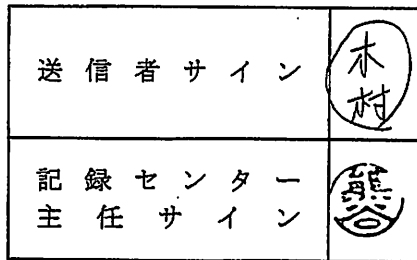 送信者サイン
木村
記録センター
主任サイン
熊谷